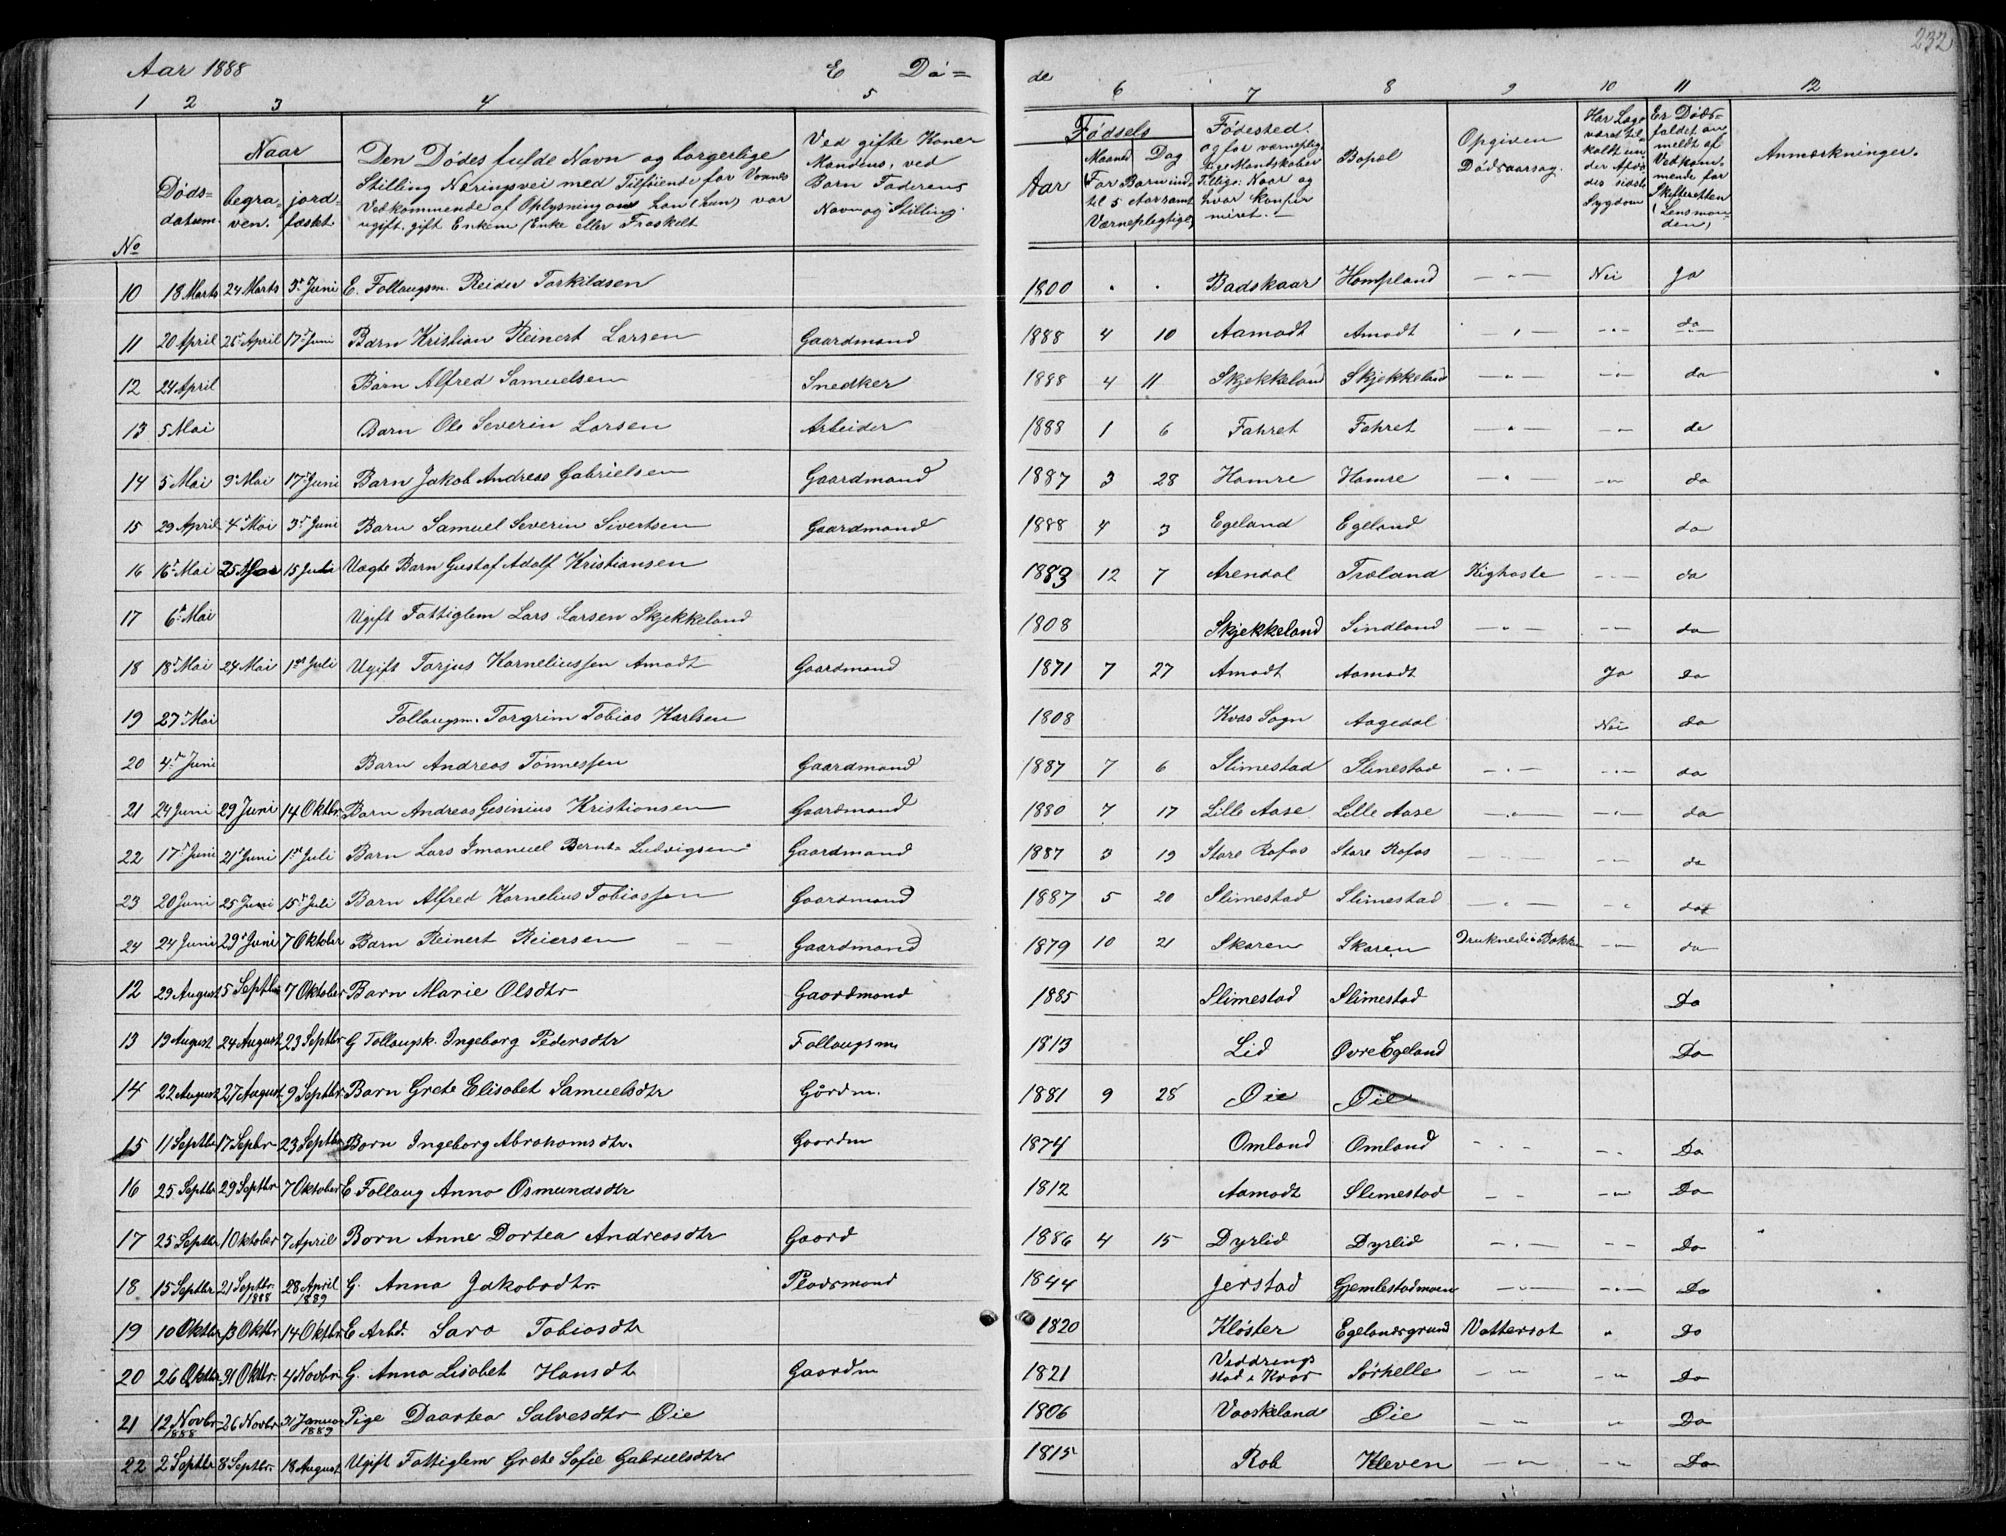 232
Aar 1888 E Dö=
de
1 2 3 4 5 6 7 8 9 10 11 12
No
Döds-
datum.
Naar
begra-
ven.
jord-
fæstet
Den Dödes fulde Navn og borgerlige
Stilling Næringsvei med Tilföiende for Voxnes
Vedkommende af Oplysning om han (hun) var
ugift, gift Enkem (Enke eller Fraskelt
Ved gifte Koner
Mandens, ved
Barn Faderens
Navn og Stilling.
Fødsels
Aar
Maaned Dag
For Barn ind-
til 5 Aar samt
Værneplegtige
Födested.
og for værneplig-
tige Mandskaber
Tillige: Naar og
hvor konfir
meret.
Bopæl
Opgiven
Dödsaarsag.
Har Læge
været til-
kaldt un-
der Afdö-
des sidste
Sygdom
Er Döds-
faldet an
meldt af
Vedkom-
mende for
Skifteretten
(Lensman-
den)
Anmærkninger.
10 18 Marts 24 Marts 3d Juni E. Follaugsm. Reider Torkildsen 1800 " " Badskaar Hompland — " — Nei Ja
11 20 April 25 April 17d Juni Barn Kristian Reinert Larsen Gaardmand 1888 4 10 Aamodt Amodt — " — — " — da
12 24 April Barn Alfred Samuelsen Snedker 1888 4 11 Skjekkeland Skjekkeland — " — — " — da
13 5 Mai Barn Ole Severin Larsen Arbeider 1888 1 6 Fahret Fahret — " — — " — da
14 5 Mai 9d Mai 17d Juni Barn Jakob Andreas Gabrielsen Gaardmand 1887 3 28 Hamre Hamre — " — — " — da
15 29 April 4d Mai 3d Juni Barn Samuel Severin Sivertsen Gaardmand 1888 4 3 Egeland Egeland da
16 16d Mai 25 Mai 15 Juli Vægte Barn Gustaf Adolf Kristiansen 1883 12 7 Arendal Træland Kighoste — " — da
17 6d Mai Ugift Fattiglem Lars Larsen Skjekkeland 1808 Skjekkeland Sindland — " — — " — da
18 18d Mai 24 Mai 1st Juli Ugift Tarjus Korneliussen Amodt Gaardmand 1871 7 27 Amodt Aamodt Ja da
19 27d Mai Follaugsm. Torgrim Tobias Karlsen 1808 Kvas Sogn Aagedal Nei da
20 4d Juni Barn Andreas Tönnessen Gaardmand 1887 7 6 Slimestad Slimestad — " — — " — da
21 24 Juni 29 Juni 14 Oktbr. Barn Andreas Gesinius Kristiansen Gaardmand 1880 7 17 Lille Aase Lille Aase — " — — " — da
22 17d Juni 21d Juni 1st Juli Barn Lars Imanuel Bernt Ludvigsen Gaardmand 1887 3 19 Store Rafos Store Rafos — " — — " — da
23 20 Juni 25 Juni 15d Juli Barn Alfred Kornelius Tobiassen Gaardmand 1887 5 20 Slimestad Slimestad — " — — " — da
24 24 Juni 29d Juni 7 Oktober Barn Reinert Reiersen Gaardmand 1879 10 21 Skaren Skaren Druknede i Bækken — " — da
12 29 August 5 Septbr 7 Oktober Barn Marie Olsdtr Gaardmand 1885 Slimestad Slimestad Da
13 19 August 24 August 23 Septbr G Follaugsk. Ingeborg Pedersdtr Follaugsm 1813 Lid Övre Egeland Da
14 22 August 27 August 9 Septbr Barn Grete Elisabet Samuelsdtr Gårdm. 1881 9 25 Öie Öie
15 11 Septbr 17 Septbr 23 Septbr Barn Ingeborg Abrahamsdtr. Gaardm 1874 Omland Omland — " — — " — Da
16 25 Septbr 29 Septbr 7 Oktober E Follaug Anna Osmundsdtr 1812 Aamodt Slimestad — " — — " — Da
17 25 Septbr 1 Oktober 7 April Barn Anne Dortea Andreasdtr Gaard 1886 4 15 Dyrlid Dyrlid — " — — " — Da
18 15 Septbr 21 Septbr. 1888 28 April 1889 G. Anna Jakobsdtr. Pladsmand 1844 Jerstad Gjemlestadmoen — " — — " — Da
19 10 Oktbr 13 Oktbr 14 Oktbr E Arbd. Sara Tobiasdtr 1820 Klöster Egelandsgrund Vattersot " Da
20 26 Oktbr 31 Oktbr. 4 Novbr. G. Anna Lisabet Hansdtr Gaardm 1821 Veddrings
stad i Kvas Sörhelle — " — — " — Da
21 12 Novbr 1888 26 Novbr 31 Januar 1889 Pige Daartea Salvesdtr Öie 1806 Vaaskeland Öie — " — " Da
22 2 Septbr 8 Septbr. 18 August Ugift Fattiglem Grete Sofie Gabrielsdtr 1815 Rob Kleven — " — — " — Da